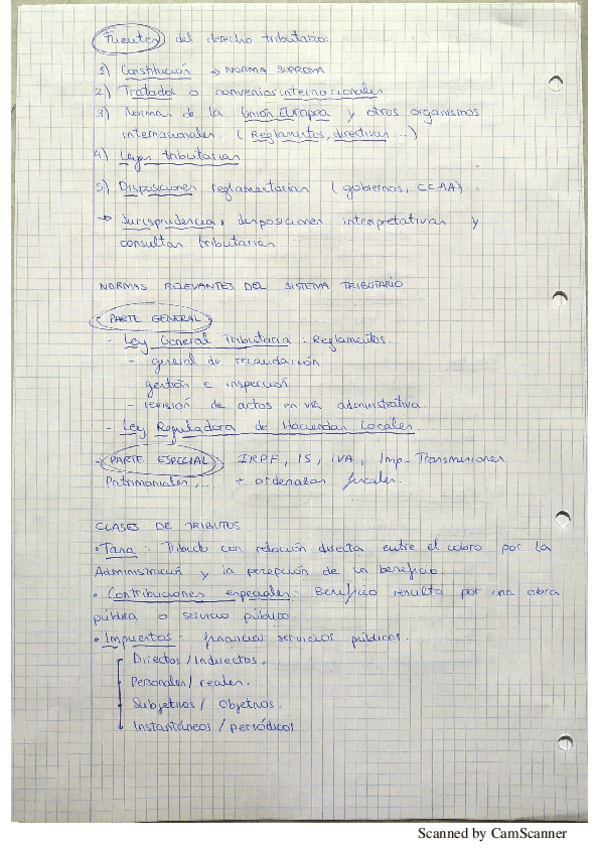 Fuentes del derecho tributario:
1) Constitución → NORMA SUPREMA
2) Tratados o convenios internacionales
3) Normas de la Unión Europea y otros organismos
internacionales. (Reglamentos, directivas...)
4) Leyes tributarias
5) Disposiciones reglamentarias (gobiernos, CCAA).
→ Jurisprudencia, disposiciones interpretativas y
consultas tributarias
NORMAS RELEVANTES DEL SISTEMA TRIBUTARIO
PARTE GENERAL
- Ley General Tributaria: Reglamentos.
- general de recaudación
- gestión e inspección
- revisión de actos en vía administrativa
- Ley Reguladora de Haciendas Locales
- PARTE ESPECIAL: IRPF, IS, IVA, Imp. Transmisiones
Patrimoniales,... + ordenanzas fiscales.
CLASES DE TRIBUTOS
• Tasa: Tributo con relación directa entre el cobro por la
Administración y la percepción de un beneficio.
• Contribuciones especiales: Beneficio resulta por una obra
pública o servicio público
• Impuestos: financiar servicios públicos.
Directos / Indirectos.
Personales / reales.
Subjetivos / Objetivos.
Instantáneos / periódicos.
Scanned by CamScanner